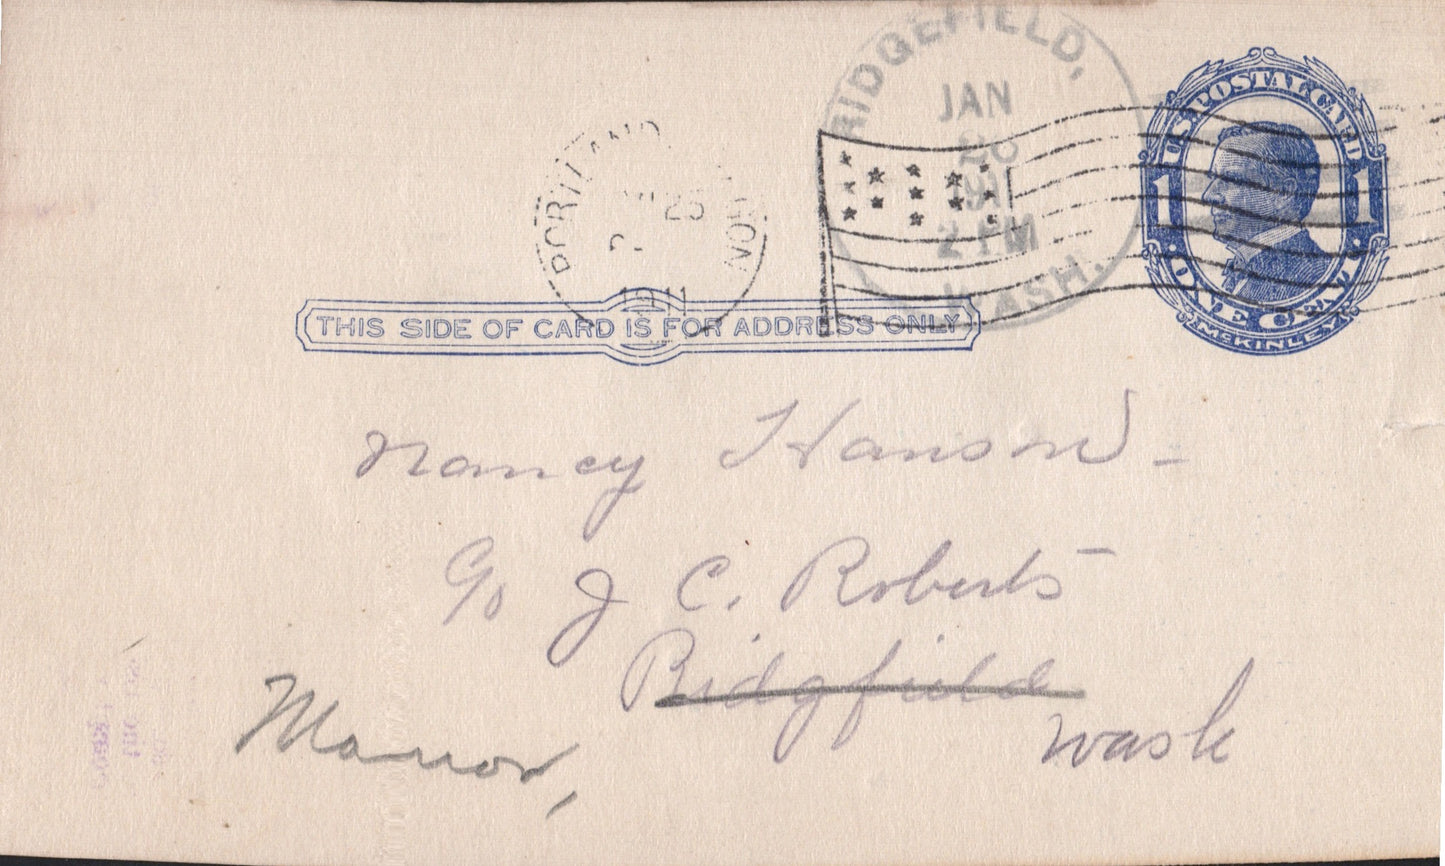 RIDGEFIELD,
JAN
26
191
2 PM
WASH.
U.S. POSTAL CARD
1 1
ONE CENT
McKINLEY
PORTLAND
25
1911
THIS SIDE OF CARD IS FOR ADDRESS ONLY
Nancy Hanson -
c/o J C. Roberts
Ridgfield
Wash
Manor,